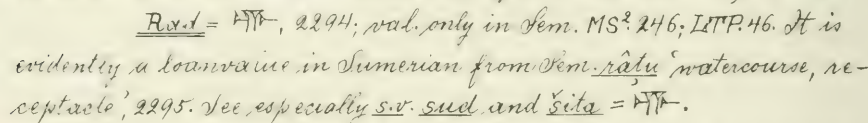 Rad = 𒋤, 2294; val. only in Sem. MS². 246; LTP. 46. It is
evidently a loanvalue in Sumerian from Sem. râtu 'watercourse, re-
ceptacle', 2295. See especially s.v. sud and šita =